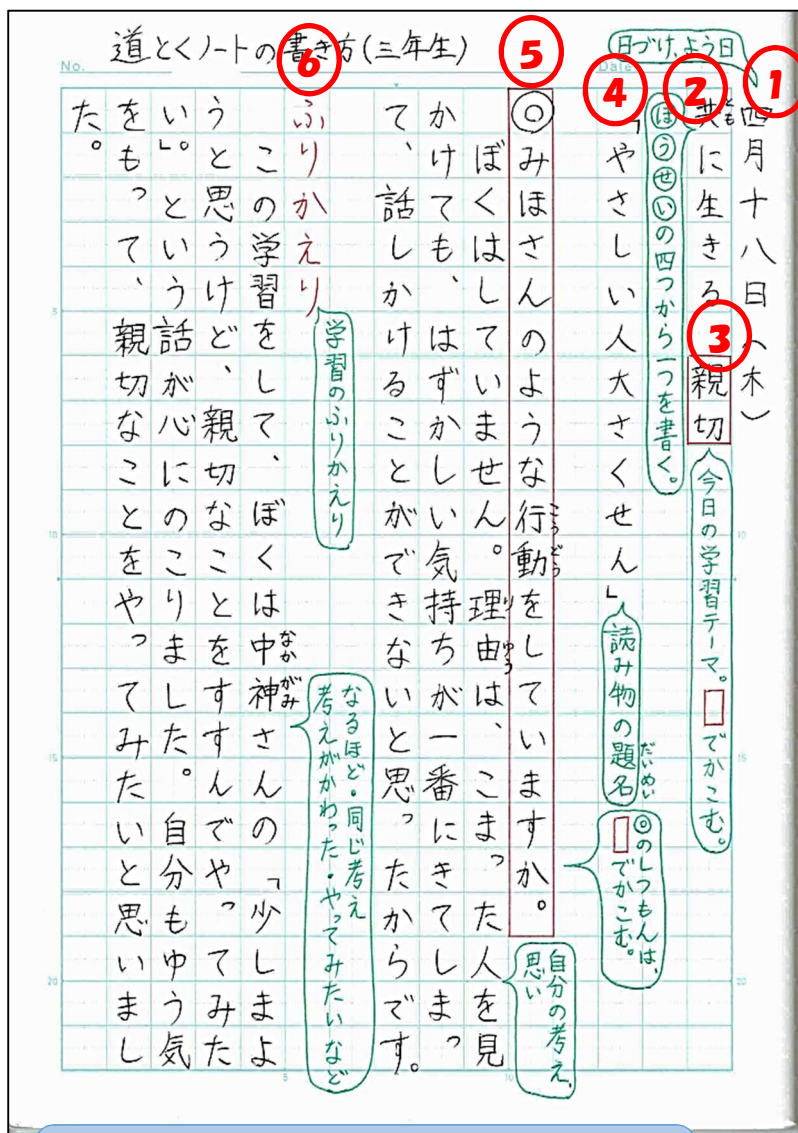 道とくノートの書き方(三年生)
No.
Date
日づけ、よう日
①
四月十八日(木)
②
共に生きる
とも
③
親切
今日の学習テーマ。□でかこむ。
ほうせいの四つから一つを書く。
④
「やさしい人大さくせん」
読み物の題名
だいめい
⑤
◎みほさんのような行動をしていますか。
こうどう
◎のしつもんは、
□でかこむ。
ぼくはしていません。理由は、こまった人を見
りゆう
かけても、はずかしい気持ちが一番にきてしまっ
て、話しかけることができないと思ったからです。
自分の考え、
思い
⑥
ふりかえり
学習のふりかえり
この学習をして、ぼくは中神さんの「少しまよ
なかがみ
うと思うけど、親切なことをすすんでやってみた
い」。という話が心にのこりました。自分もゆう気
をもって、親切なことをやってみたいと思いまし
た。
なるほど・同じ考え
考えがかわった・やってみたいなど
5
10
15
20
5
10
15
20
5
10